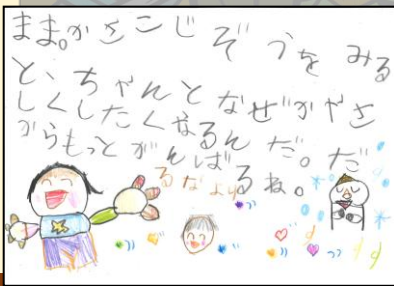 まま。かさこじぞうをみる
と、ちゃんとなぜかやさ
しくしたくなるんだ。だ
からもっとがんばるね。
るなより